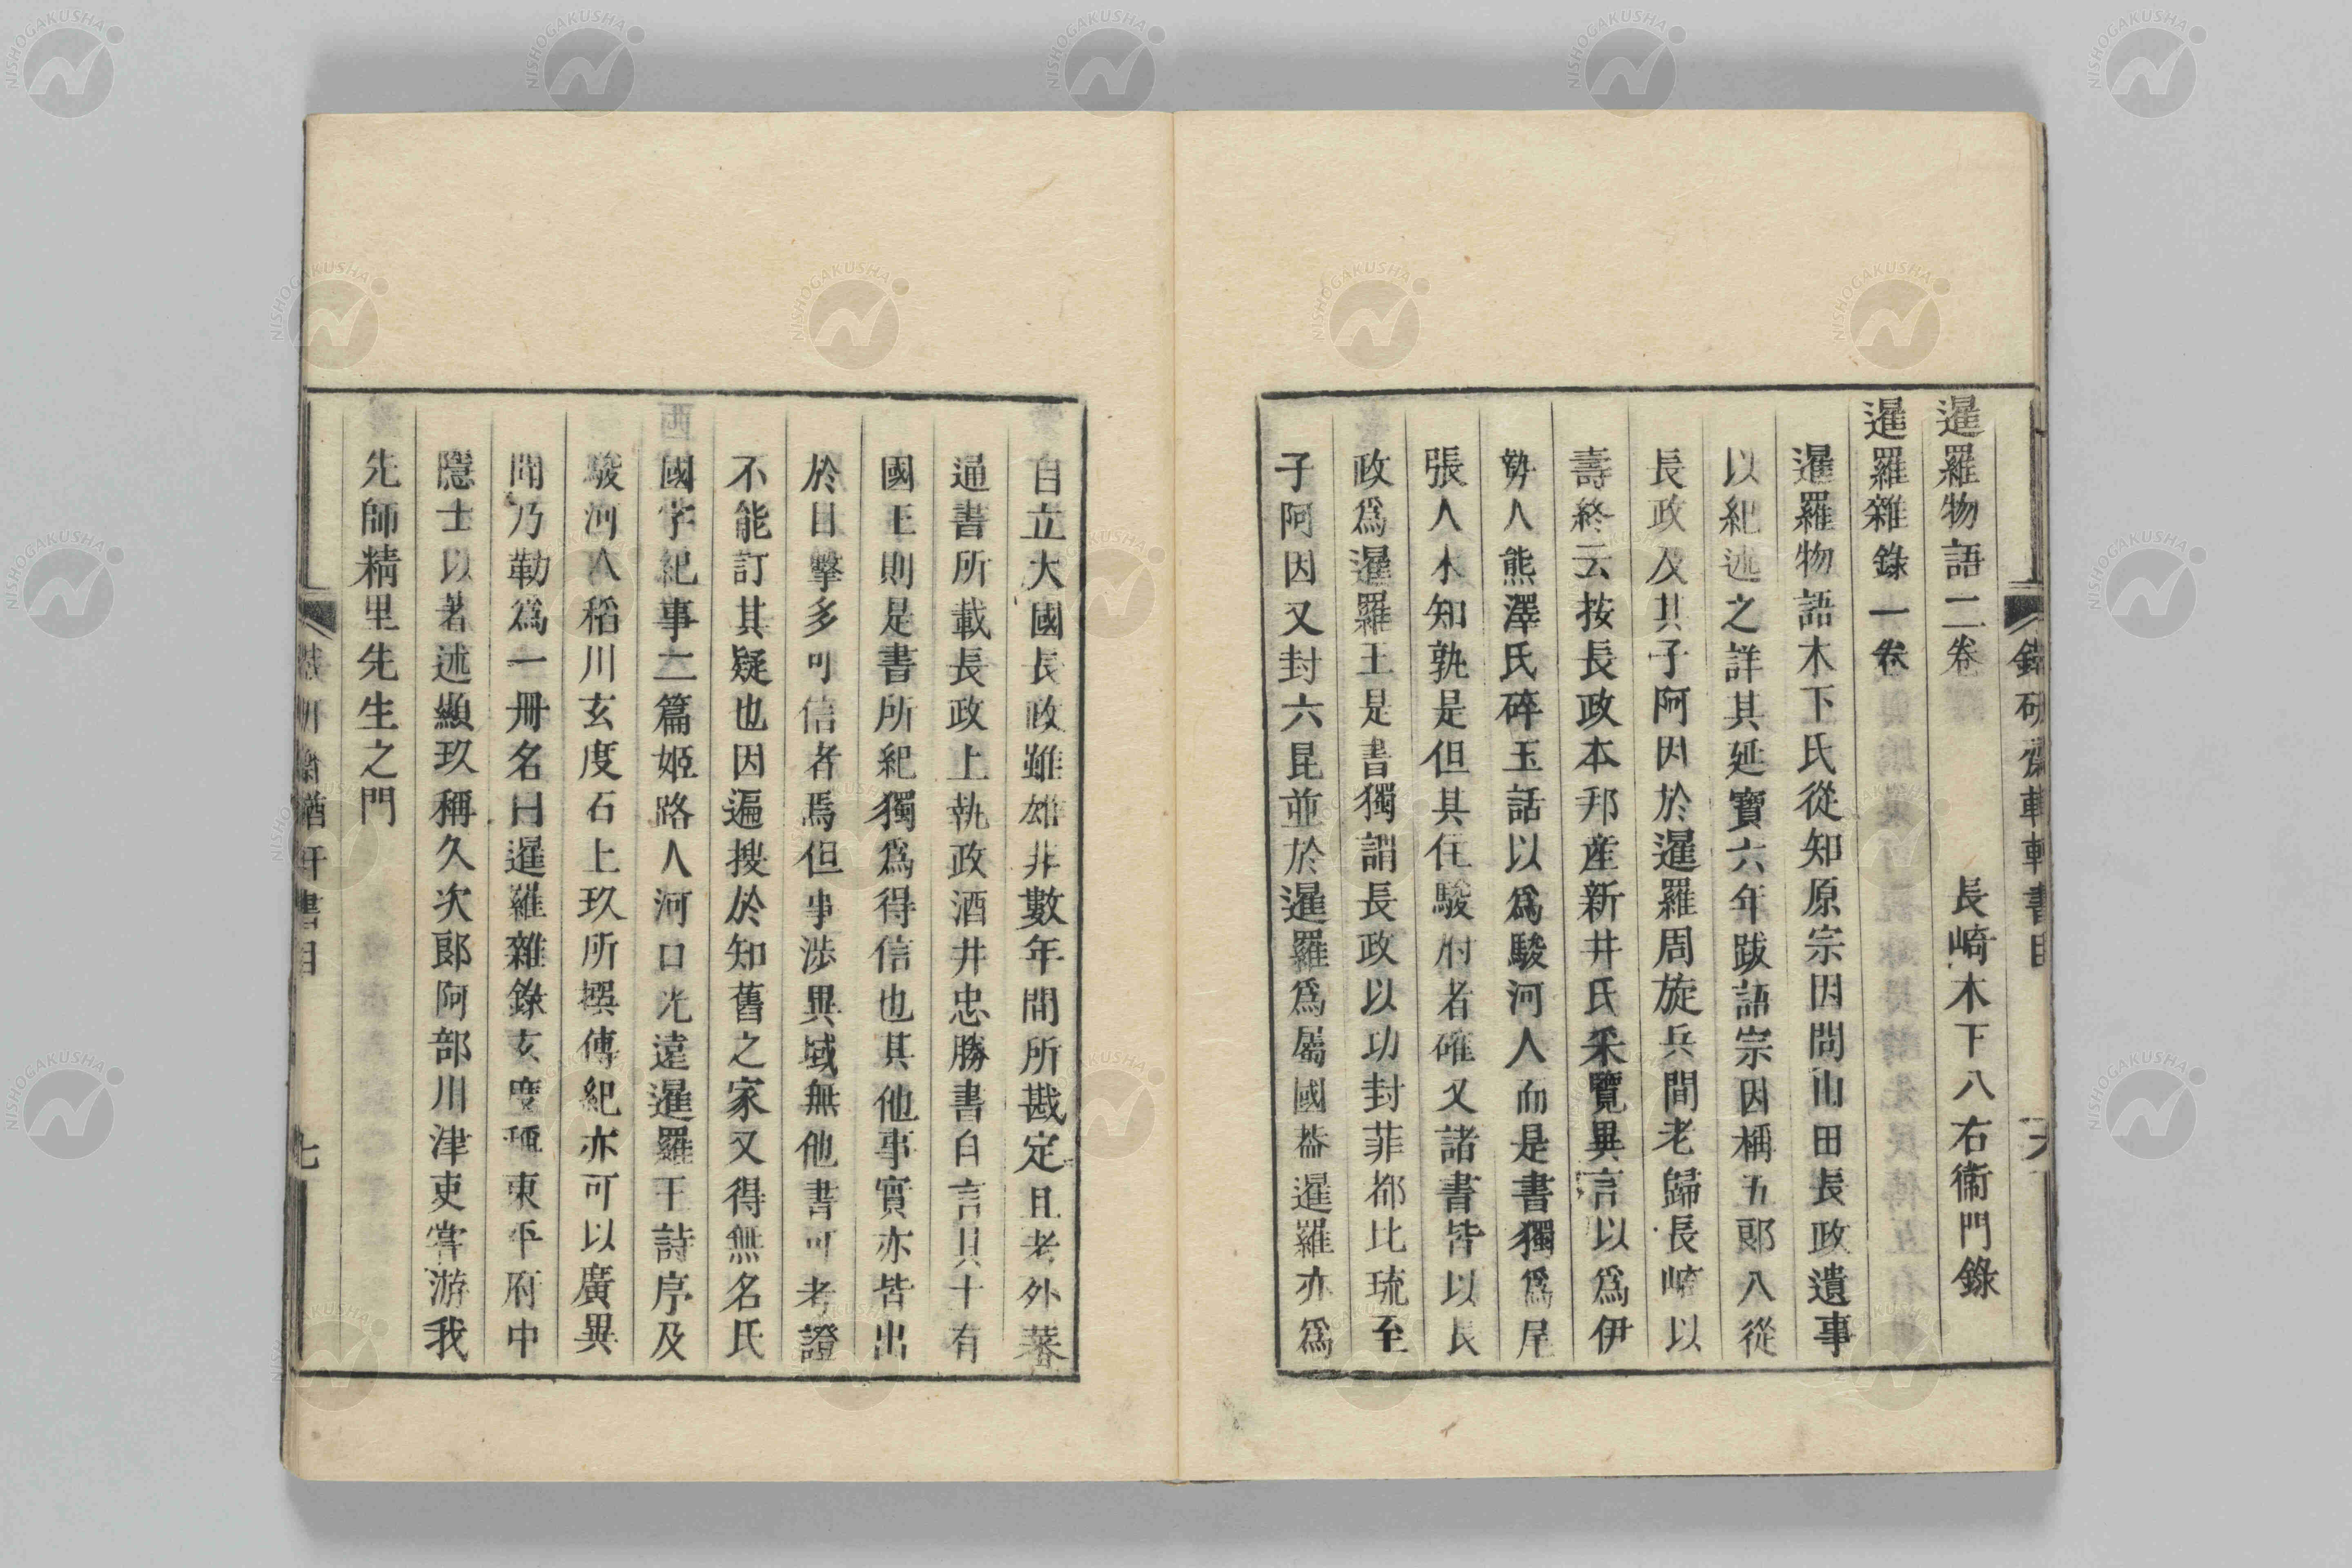 鐵研齋輶軒書目
六
暹羅物語二卷 長崎木下八右衞門錄
暹羅雜錄一卷
暹羅物語木下氏從知原宗因問山田長政遺事
以紀述之詳其延寶六年跋語宗因稱五郞八從
長政及其子阿因於暹羅周旋兵間老歸長崎以
壽終云按長政本邦產新井氏采覽異言以爲伊
勢人熊澤氏碎玉話以爲駿河人而是書獨爲尾
張人未知孰是但其住駿府者確又諸書皆以長
政爲暹羅王是書獨謂長政以功封菲都比琉至
子阿因又封六昆並於暹羅爲屬國葢暹羅亦爲
自立大國長政雖雄非數年間所戡定且考外蕃
通書所載長政上執政酒井忠勝書自言具十有
國王則是書所紀獨爲得信也其他事實亦皆出
於目擊多可信者焉但事涉異域無他書可考證
不能訂其疑也因遍搜於知舊之家又得無名氏
國字紀事二篇姬路人河口光遠暹羅王詩序及
駿河人稻川玄度石上玖所撰傳紀亦可以廣異
聞乃勒爲一冊名曰暹羅雜錄玄度種東平府中
隱士以著述顯玖稱久次郞阿部川津吏嘗游我
先師精里先生之門
鐵研齋輶軒書目
七
NISHOGAKUSHA